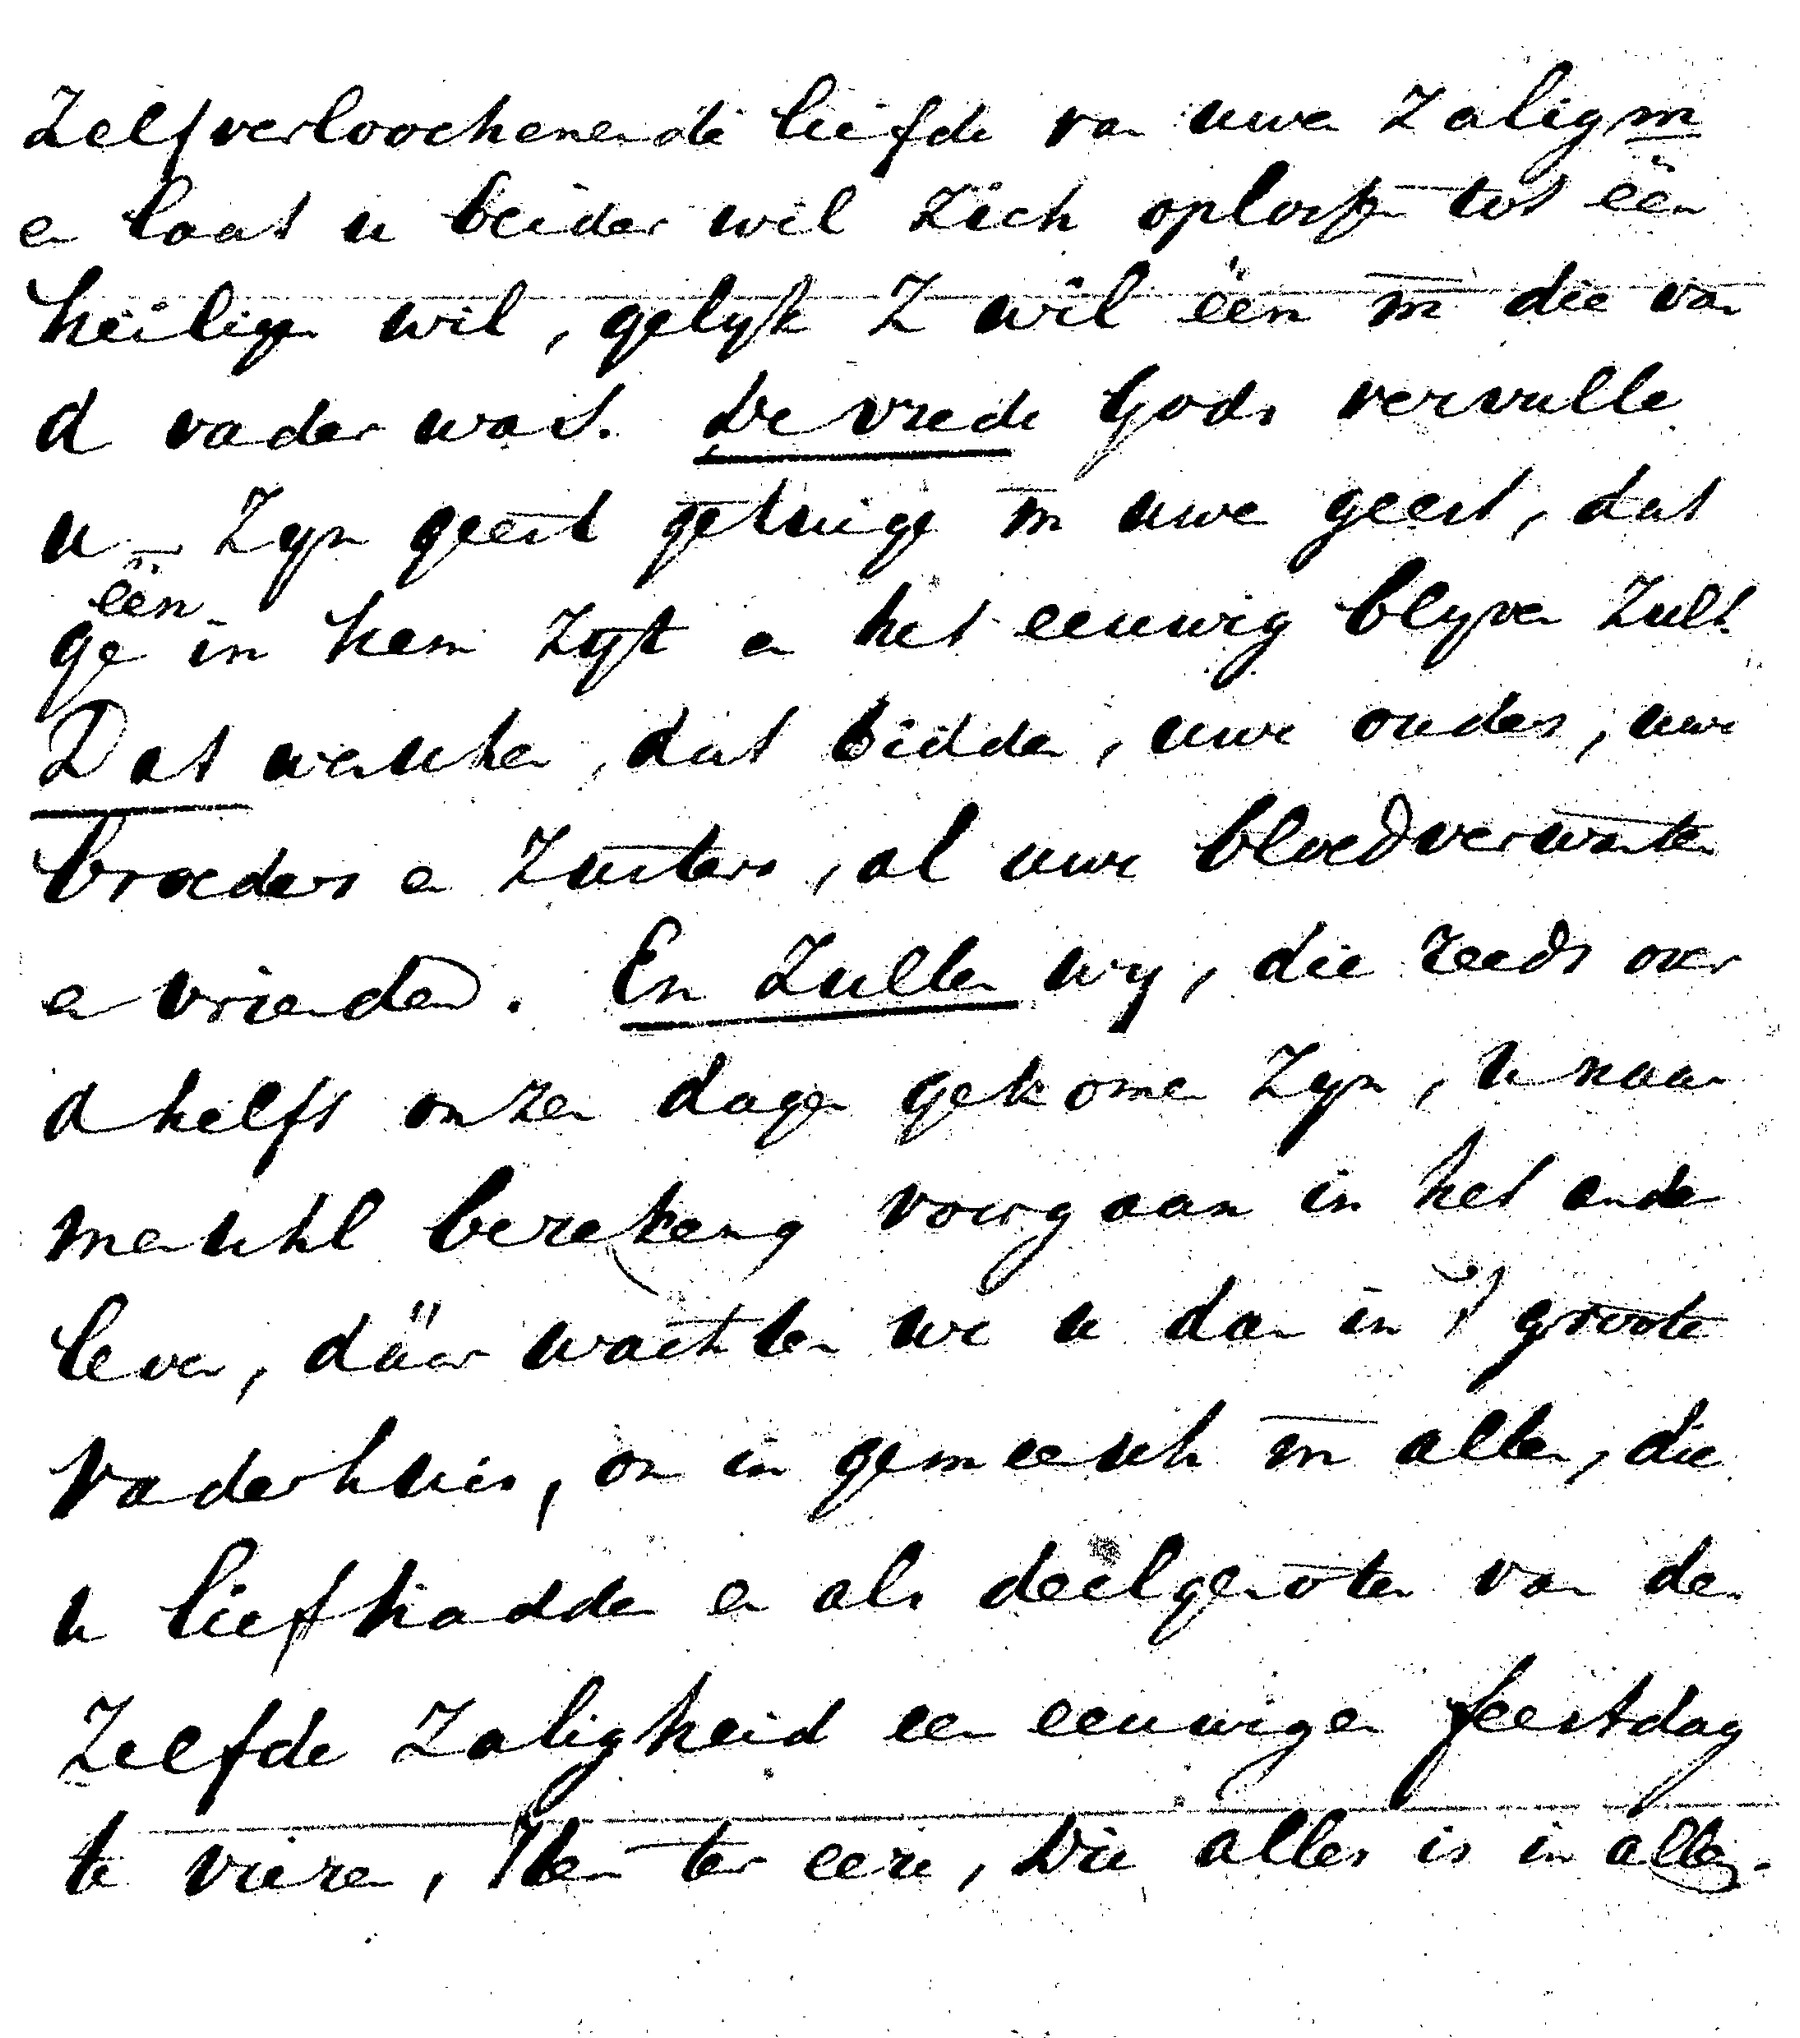 Zelfverloochenende liefde van uwen Zaligm
en laat u beider wil zich oplossen tot één
heiligen wil, gelijk Z wil één m̄ die van
d vader was. De vrede Gods vervulle
u – Zijn geest getuige m̄ uwe geest, dat
één
ge in hem zijt en het eeuwig blijven zult.
Dat wenschen, dat bidden, uwe ouders, uwe
broeders en zusters, al uwe bloedverwanten
en vrienden. En zullen wij, die reeds over
d helft onzer dagen gekomen zijn, u naar
menschl berekeng voorgaan in het ander
leven, dáár wachten we u dan in 't groote
Vaderhuis, om in gemeensch m̄ allen, die
u liefhadden en als deelgenoten van de
Zelfde Zaligheid een eeuwigen feestdag
te vieren, Hem ter eere, Die alles is in allen.